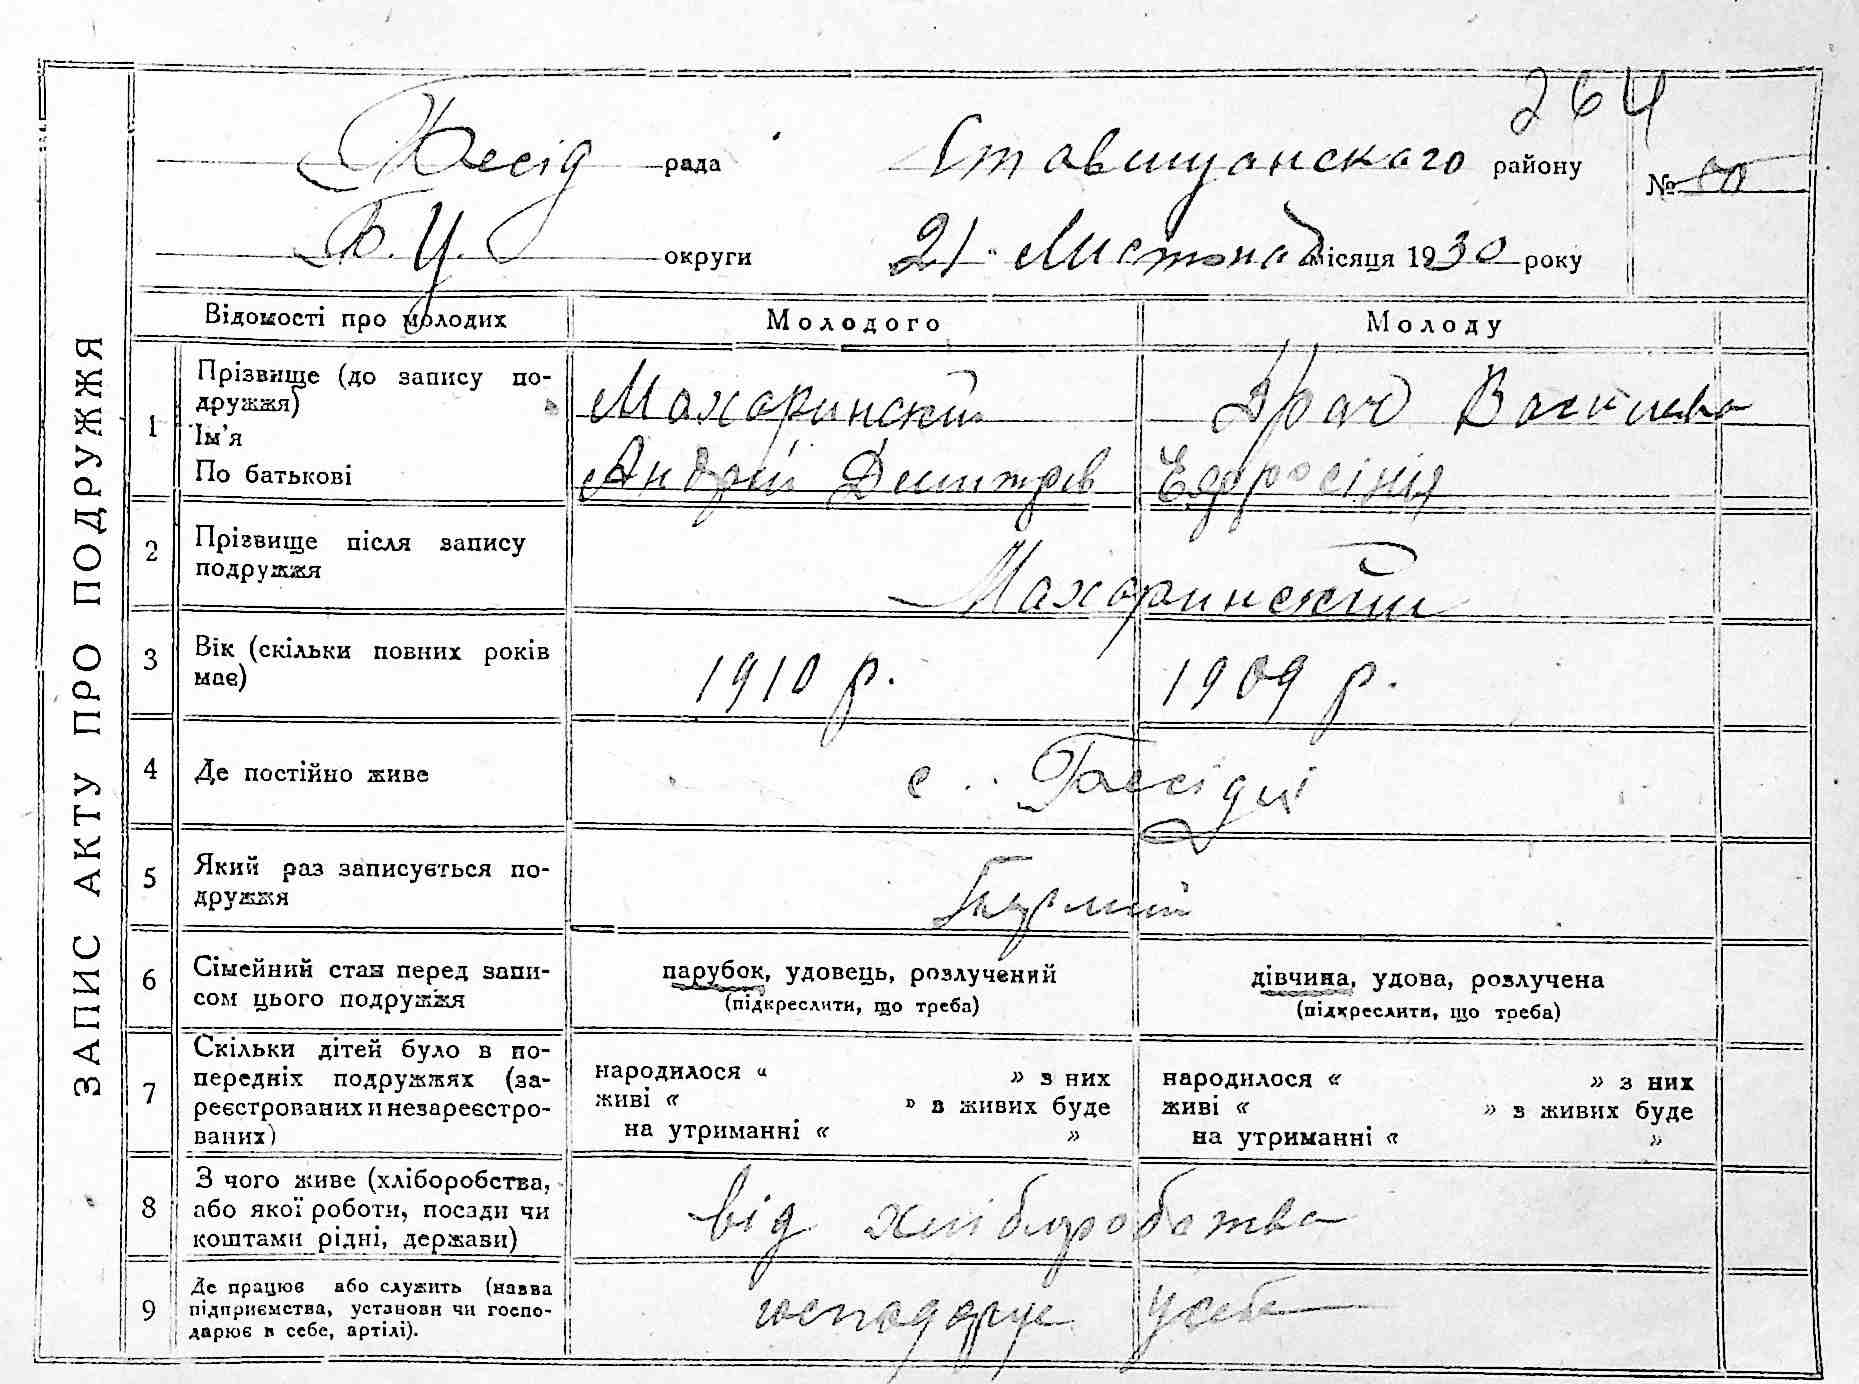 264
Бесід рада Ставищанскаго району № 80
Б. Ц. округи 21 " Листопад місяця 1930 року
ЗАПИС АКТУ ПРО ПОДРУЖЖЯ
Відомості про молодих Молодого Молоду
1 Прізвище (до запису по-
дружжя) Махаринский Драч Василева
Ім'я
По батькові Андрій Дмитрів Ефросінія
2 Прізвище після запису
подружжя Махаринский
3 Вік (скільки повних років
має) 1910 р. 1909 р.
4 Де постійно живе с.
5 Який раз записується по-
дружжя Перший
6 Сімейний стан перед запи-
сом цього подружжя
парубок, удовець, розлучений дівчина, удова, розлучена
(підкреслити, що треба) (підкреслити, що треба)
7 Скільки дітей було в по-
передніх подружжях (за-
реєстрованих и незареєстро-
ваних)
народилося « » з них народилося « » з них
живі « » в живих буде живі « » з живих буде
на утриманні « » на утриманні « »
8 З чого живе (хліборобства,
або якої роботи, посади чи
коштами рідні, держави) від хліборобства
9 Де працює або служить (назва
підприємства, установи чи госпо-
дарює в себе, артілі). господарує у себе